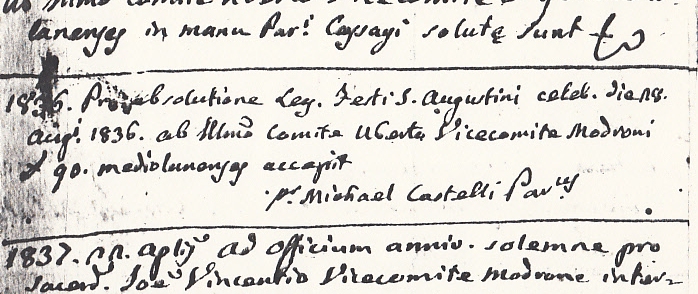 lanenses in manu Par.i Cassagi solute sunt
1836. Pro absolutione Leg. Festi S. Augustini celeb. die 28.
Aug.i 1836. ab Illmo Comite Uberto Vicecomite Modroni
£ 90. mediolanenses accepit
Pr. Michael Castelli Par.us
1837. Aplis ad officium anniv. solemne pro
Sacerd. Joe Vincentio Vicecomite Modrone inter-